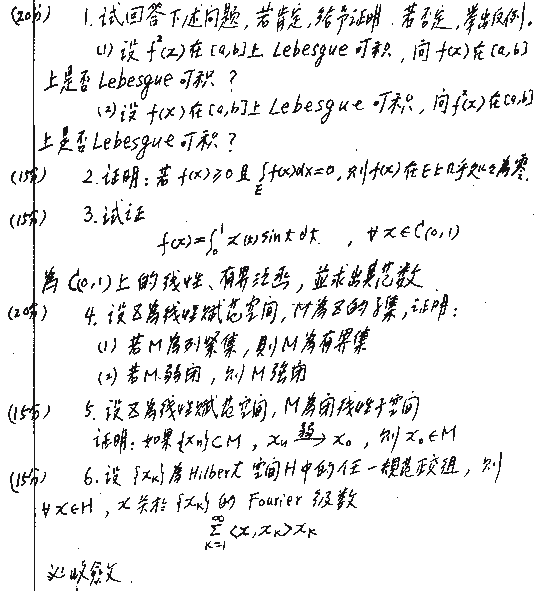 (20分) 1.试回答下述问题,若肯定,给予证明.若否定,举出反例。
(1)设f²(x)在[a,b]上Lebesgue可积,问f(x)在[a,b]
上是否Lebesgue可积?
(2)设f(x)在[a,b]上Lebesgue可积,问f²(x)在[a,b]
上是否Lebesgue可积?
(15分) 2.证明:若f(x)≥0且∫_E f(x)dx=0,则f(x)在E上几乎处处为零.
(15分) 3.试证
f(x)=∫₀¹ x(t) sint dt , ∀x∈C(0,1)
为C(0,1)上的线性、有界泛函,並求出其范数
(20分) 4.设Z为线性赋范空间,M为Z的子集,证明:
(1)若M为列紧集,则M为有界集
(2)若M弱闭,则M强闭
(15分) 5.设Z为线性赋范空间,M为闭线性子空间
证明:如果{xn}⊂M,xn 弱→ x₀,则x₀∈M
(15分) 6.设{xK}为Hilbert空间H中的任一规范正交组,则
∀x∈H,x关于{xK}的Fourier级数
∑_{K=1}^{∞} <x,xK>xK
必收敛